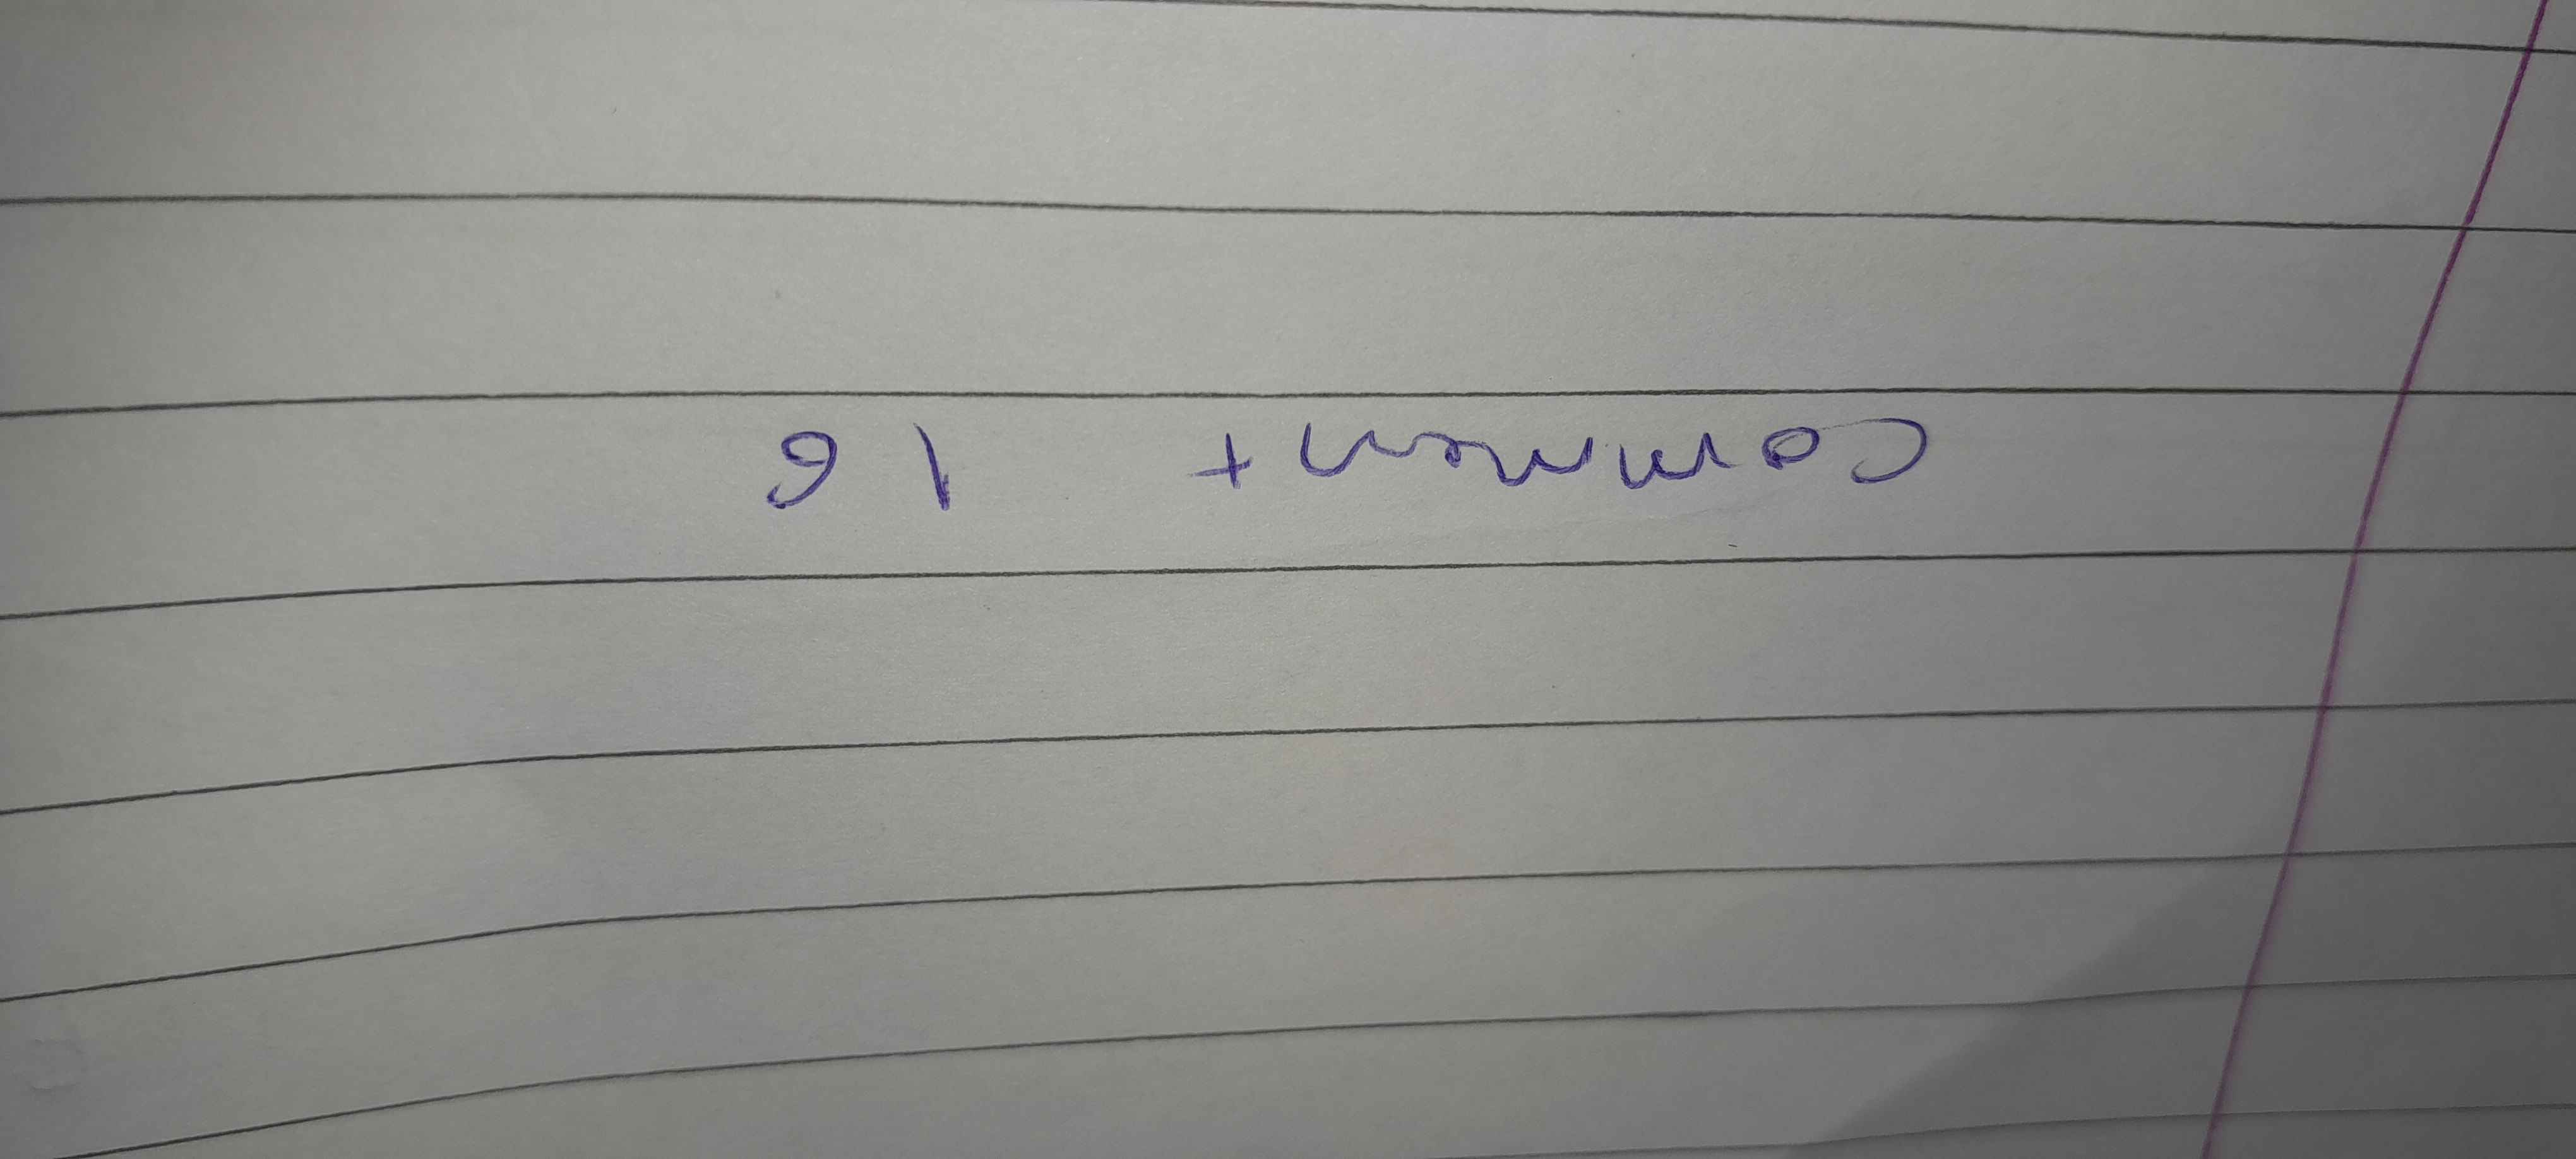 Comment 16